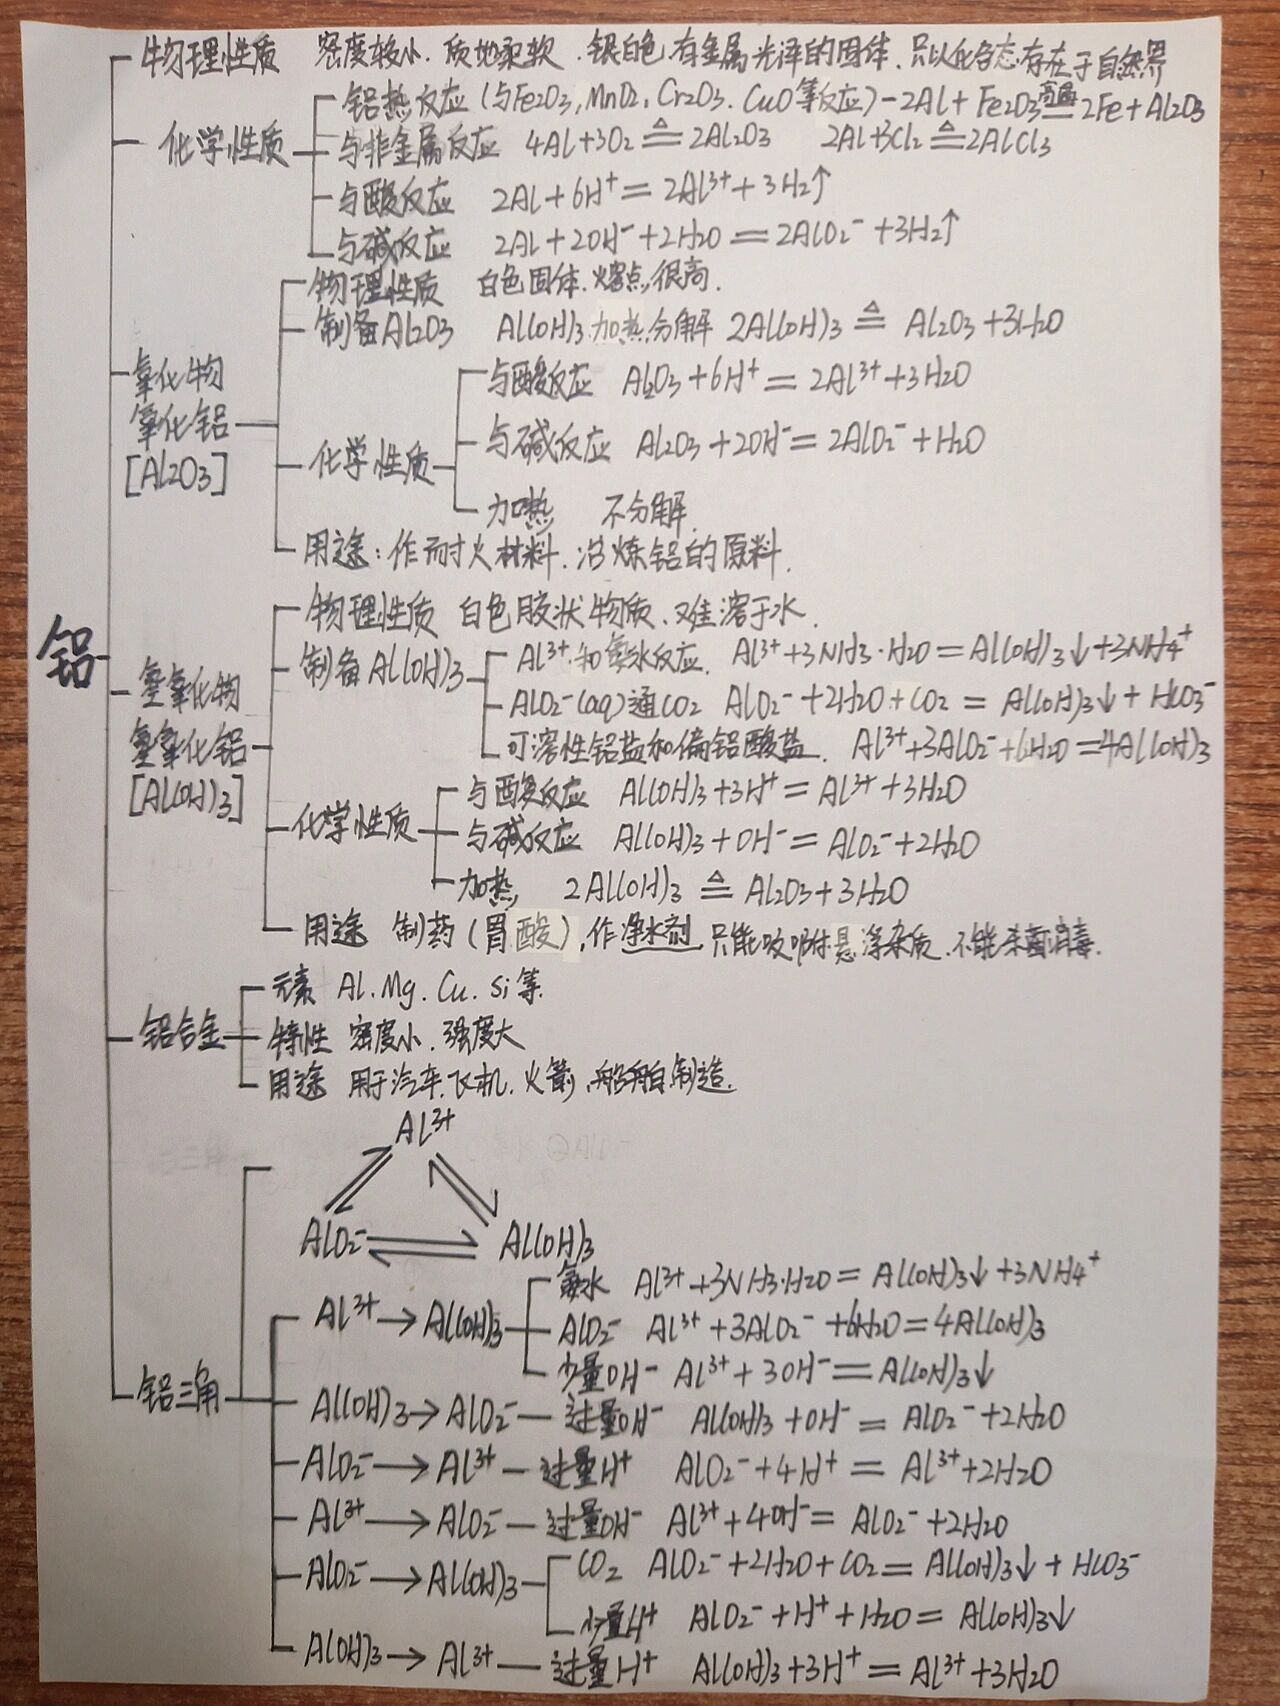 物理性质 密度较小.质地柔软.银白色.有金属光泽的固体.只以化合态存在于自然界
铝热反应(与Fe2O3,MnO2,Cr2O3.CuO等反应)-2Al+Fe2O3 高温═ 2Fe+Al2O3
化学性质
与非金属反应 4Al+3O2 △═ 2Al2O3 2Al+3Cl2 △═ 2AlCl3
与酸反应 2Al+6H⁺=2Al³⁺+3H2↑
与碱反应 2Al+2OH⁻+2H2O=2AlO2⁻+3H2↑
物理性质 白色固体.熔点很高.
制备Al2O3 Al(OH)3加热分解 2Al(OH)3 △═ Al2O3+3H2O
氧化物
氧化铝
[Al2O3]
与酸反应 Al2O3+6H⁺=2Al³⁺+3H2O
与碱反应 Al2O3+2OH⁻=2AlO2⁻+H2O
化学性质
加热 不分解.
用途:作耐火材料.冶炼铝的原料.
铝
物理性质 白色胶状物质.难溶于水.
制备Al(OH)3
Al³⁺和氨水反应. Al³⁺+3NH3·H2O=Al(OH)3↓+3NH4⁺
AlO2⁻(aq)通CO2 AlO2⁻+2H2O+CO2=Al(OH)3↓+HCO3⁻
可溶性铝盐和偏铝酸盐. Al³⁺+3AlO2⁻+6H2O=4Al(OH)3
氢氧化物
氢氧化铝
[Al(OH)3]
与酸反应 Al(OH)3+3H⁺=Al³⁺+3H2O
化学性质
与碱反应 Al(OH)3+OH⁻=AlO2⁻+2H2O
加热 2Al(OH)3 △═ Al2O3+3H2O
用途 制药(胃酸),作净水剂,只能吸附悬浮杂质.不能杀菌消毒.
铝合金
元素 Al.Mg.Cu.Si等.
特性 密度小.强度大
用途 用于汽车.飞机.火箭.船舶制造.
Al³⁺
AlO2⁻ Al(OH)3
铝三角
Al³⁺→Al(OH)3
氨水 Al³⁺+3NH3·H2O=Al(OH)3↓+3NH4⁺
AlO2⁻ Al³⁺+3AlO2⁻+6H2O=4Al(OH)3
少量OH⁻ Al³⁺+3OH⁻=Al(OH)3↓
Al(OH)3→AlO2⁻—过量OH⁻ Al(OH)3+OH⁻=AlO2⁻+2H2O
AlO2⁻→Al³⁺—过量H⁺ AlO2⁻+4H⁺=Al³⁺+2H2O
Al³⁺→AlO2⁻—过量OH⁻ Al³⁺+4OH⁻=AlO2⁻+2H2O
AlO2⁻→Al(OH)3
CO2 AlO2⁻+2H2O+CO2=Al(OH)3↓+HCO3⁻
少量H⁺ AlO2⁻+H⁺+H2O=Al(OH)3↓
Al(OH)3→Al³⁺—过量H⁺ Al(OH)3+3H⁺=Al³⁺+3H2O